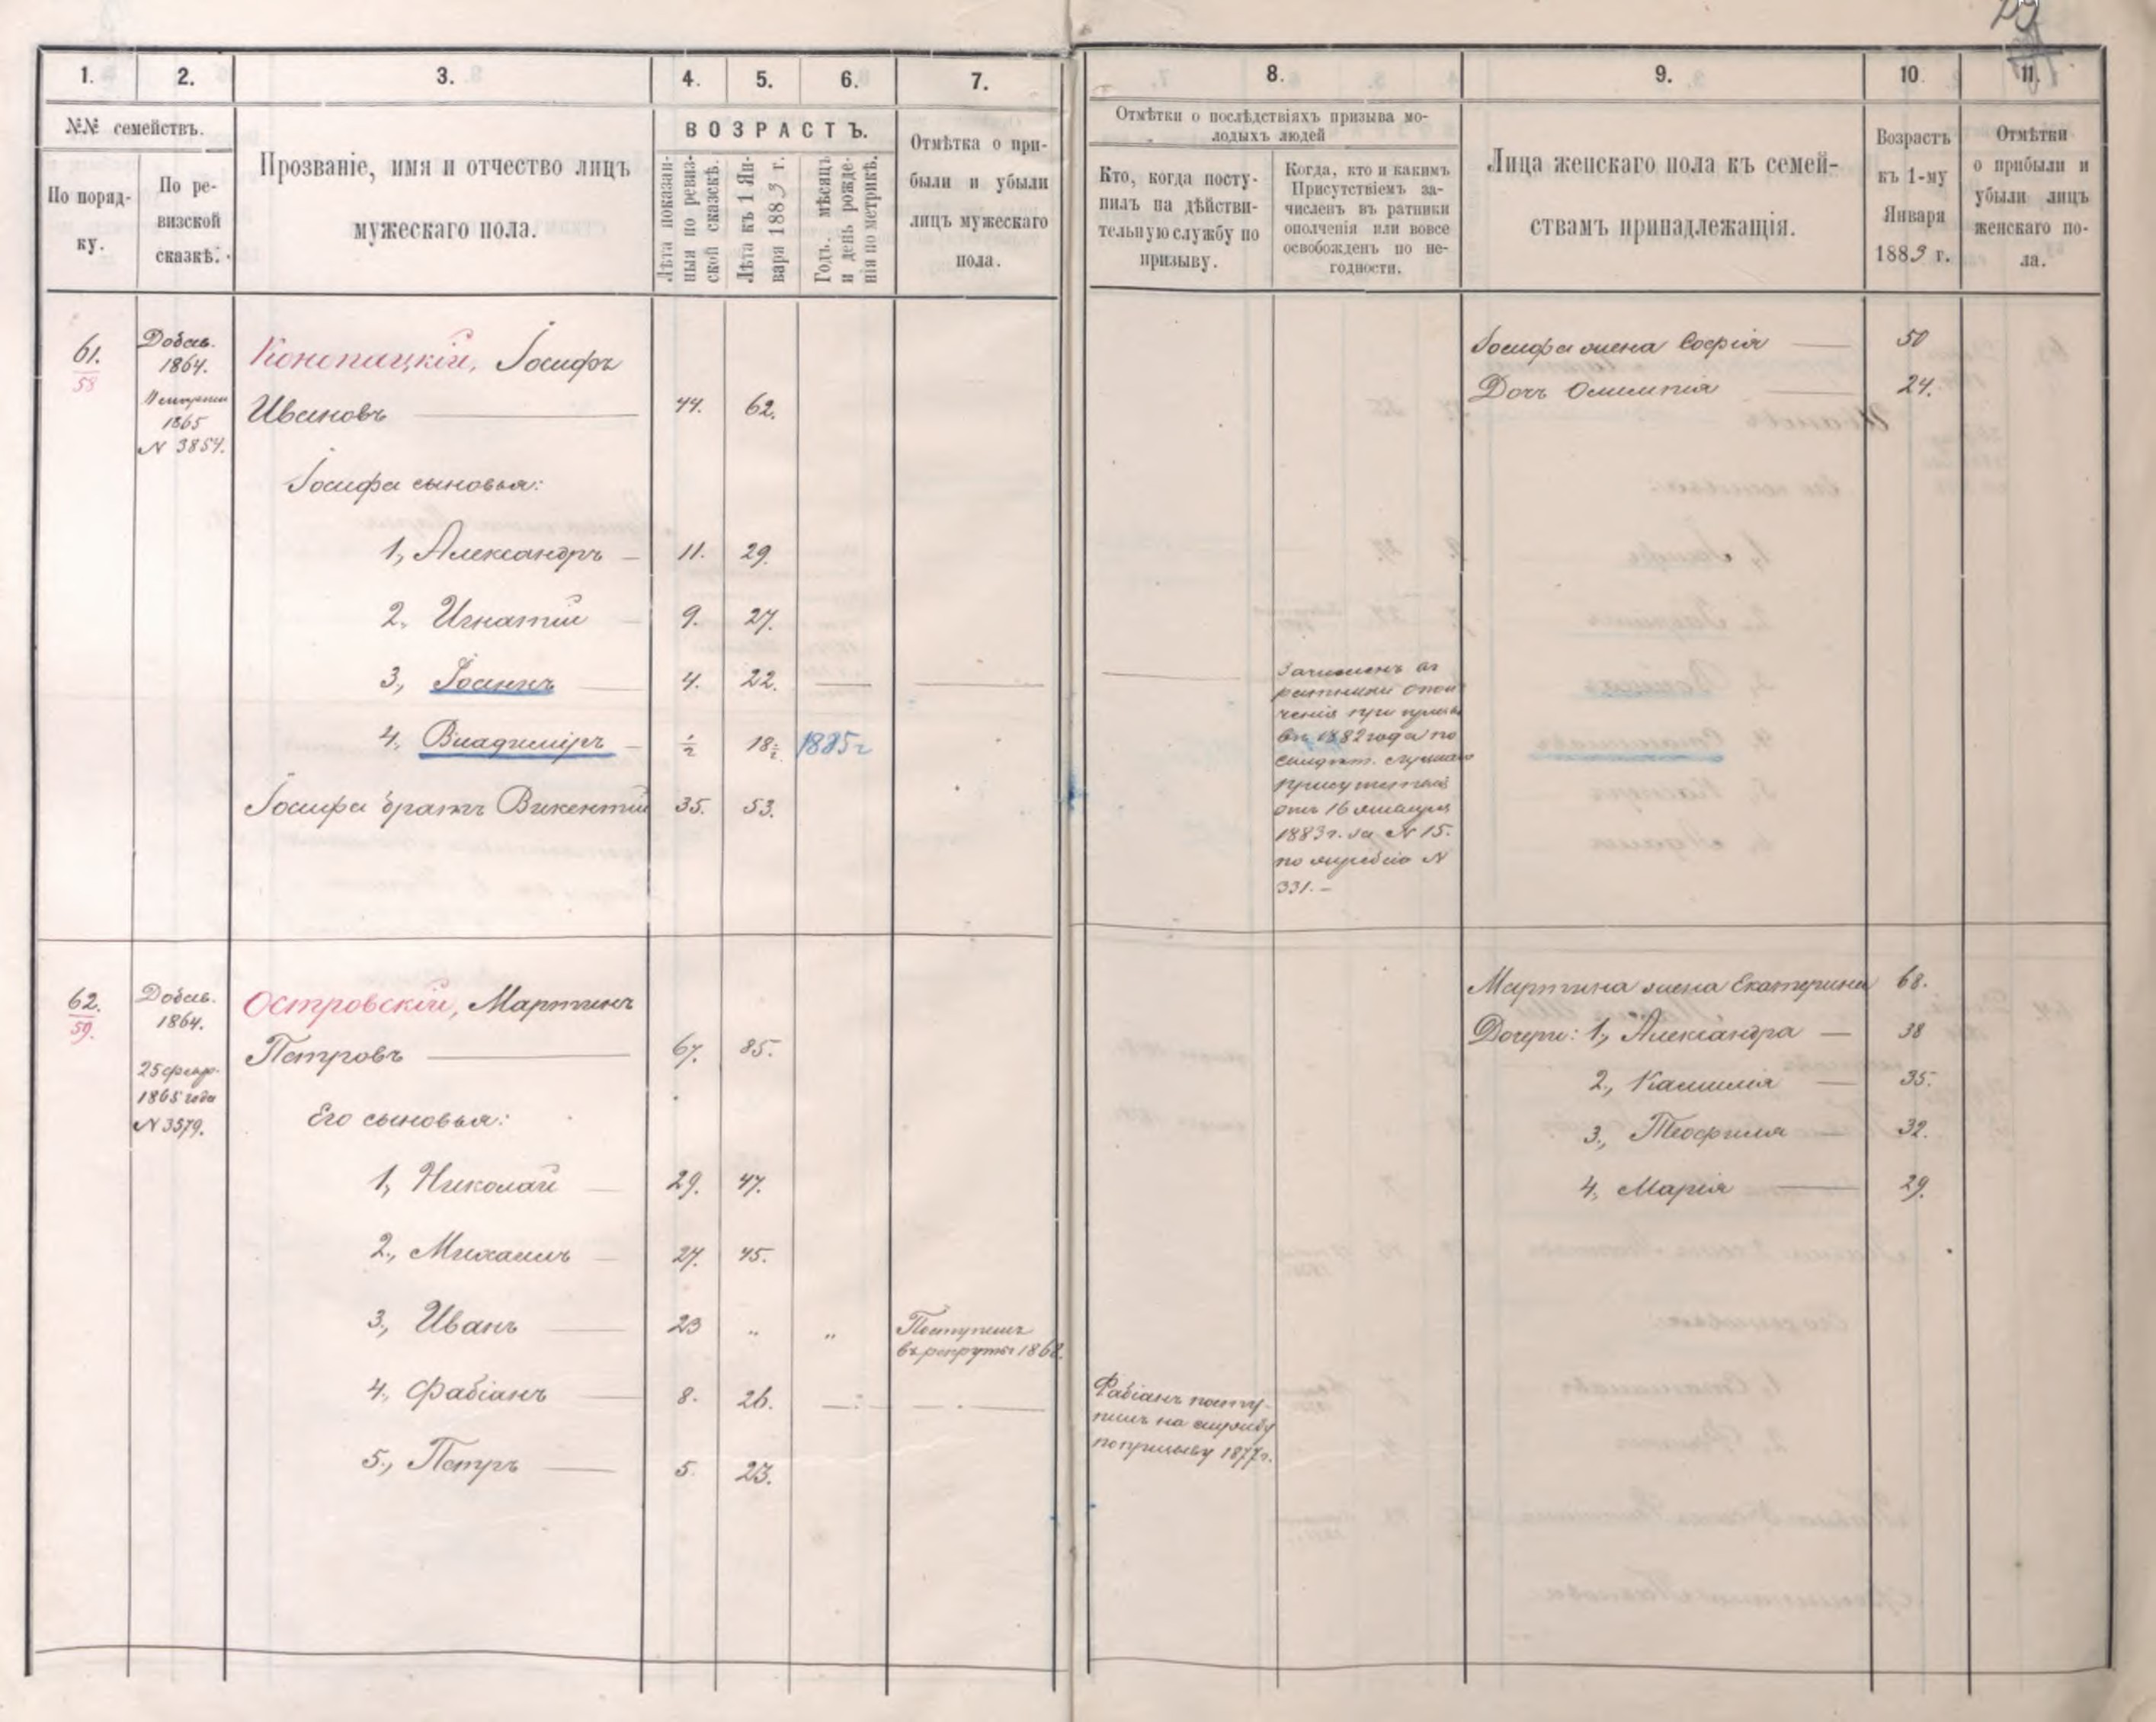 1. 2. 3. 4. 5. 6. 7. 8. 9. 10. 11.
№№ семействъ.
По поряд-
ку.
По ре-
визской
сказкѣ.
Прозваніе, имя и отчество лицъ
мужескаго пола.
ВОЗРАСТЪ.
Лѣта показан-
ныя по ревиз-
ской сказкѣ.
Лѣта къ 1 Ян-
варя 1883 г.
Годъ, мѣсяцъ
и день рожде-
нія по метрикѣ.
Отмѣтка о при-
были и убыли
лицъ мужескаго
пола.
Отмѣтки о послѣдствіяхъ призыва мо-
лодыхъ людей
Кто, когда посту-
пилъ на дѣйстви-
тельную службу по
призыву.
Когда, кто и какимъ
Присутствіемъ за-
численъ въ ратники
ополченія или вовсе
освобожденъ по не-
годности.
Лица женскаго пола къ семей-
ствамъ принадлежащія.
Возрастъ
къ 1-му
Января
1883 г.
Отмѣтки
о прибыли и
убыли лицъ
женскаго по-
ла.
61.
58
Добав.
1864.
1865
N 3854.
Конопацкій, Іосифъ
Ивановъ 44. 62.
Іосифа сыновья:
1, Александръ 11. 29.
2, Игнатій 9. 27.
3, Іоаннъ 4. 22.
4, Владиміръ ½ 18½ 1885 г
Іосифа братъ Викентій 35. 53.
Зачисленъ въ
ратники опол
ченія при призыв
въ 1882 года по
присутствія
отъ 16 января
1883 г. за N 15.
по жребію N
331.
Іосифа жена Софія 50
Дочь Олимпія 24.
62.
59.
Добав.
1864.
25 февр.
1865 года
N 3579.
Островскій, Мартинъ
Петровъ 67. 85.
Его сыновья:
1, Николай 29. 47.
2, Михаилъ 27. 45.
3, Иванъ 23 " "
Поступилъ
въ рекруты 1868.
4, Фабіанъ 8. 26.
Фабіанъ посту-
пилъ на службу
по призыву 1877 г.
5, Петръ 5. 23.
Мартина жена Екатерина 68.
Дочери: 1, Александра 38
2, Камилія 35.
3, Теофиля 32.
4, Марія 29.